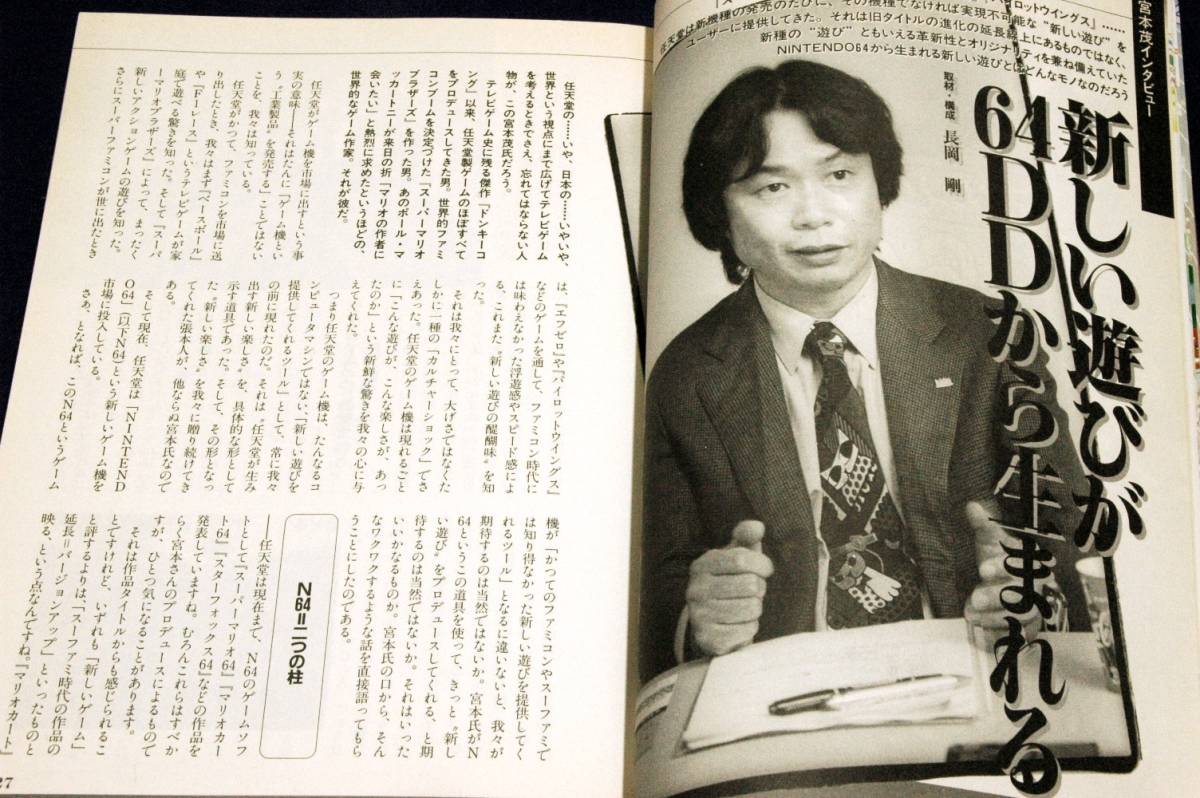 宮本茂インタビュー
新しい遊びが
64DDから生まれる
パイロットウイングス』……
任天堂は新機種の発売のたびに、その機種でなければ実現不可能な“新しい遊び”を
ユーザーに提供してきた。それは旧タイトルの進化の延長線上にあるものではなく、
新種の“遊び”ともいえる革新性とオリジナリティを兼ね備えていた
NINTENDO64から生まれる新しい遊びとはどんなモノなのだろう
取材・構成 長岡 剛
任天堂の……いや、日本の……いやいや、
世界という視点にまで広げてテレビゲーム
を考えるときでさえ、忘れてはならない人
物が、この宮本茂氏だろう。
テレビゲーム史に残る傑作『ドンキーコ
ング』以来、任天堂製ゲームのほぼすべて
をプロデュースしてきた男。世界的ファミ
コンブームを決定づけた『スーパーマリオ
ブラザーズ』を作った男。あのポール・マ
ッカートニーが来日の折「マリオの作者に
会いたい」と熱烈に求めたというほどの、
世界的なゲーム作家。それが彼だ。
任天堂がゲーム機を市場に出すという事
実の意味──それはたんに「ゲーム機とい
う“工業製品”を発売する」ことではない
ことを、我々は知っている。
任天堂がかつて、ファミコンを市場に送
り出したとき、我々はまず『ベースボール』
や『F1レース』というテレビゲームが家
庭で遊べる驚きを知った。そして『スーパ
ーマリオブラザーズ』によって、まったく
新しいアクションゲームの遊びを知った。
さらにスーパーファミコンが世に出たとき
は、『エフゼロ』や『パイロットウイングス』
などのゲームを通して、ファミコン時代に
は味わえなかった浮遊感やスピード感によ
る、これまた“新しい遊びの醍醐味”を知
った。
それは我々にとって、大げさではなくた
しかに一種の「カルチャーショック」でさ
えあった。任天堂のゲーム機は現れるごと
に「こんな遊びが、こんな楽しさが、あっ
たのか」という新鮮な驚きを我々の心に与
えてくれた。
つまり任天堂のゲーム機は、たんなるコ
ンピュータマシンではない、「新しい遊びを
提供してくれるツール」として、常に我々
の前に現れたのだ。それは“任天堂が生み
出す新しい楽しさ”を、具体的な形として
示す道具であった。そして、その形となっ
た“新しい楽しさ”を我々に贈り続けてき
てくれた張本人が、他ならぬ宮本氏なので
ある。
そして現在、任天堂は「NINTEND
O64」(以下N64)という新しいゲーム機を
市場に投入している。
さあ、となれば、このN64というゲーム
機が「かつてのファミコンやスーファミで
は知り得なかった新しい遊びを提供してく
れるツール」となるに違いないと、我々が
期待するのは当然ではないか。宮本氏がN
64というこの道具を使って、きっと“新し
い遊び”をプロデュースしてくれる、と期
待するのは当然ではないか。それはいった
いいかなるものか。宮本氏の口から、そん
なワクワクするような話を直接語ってもら
うことにしたのである。
N64=二つの柱
──任天堂は現在まで、N64のゲームソフ
トとして『スーパーマリオ64』『マリオカー
ト64』『スターフォックス64』などの作品を
発表していますね。むろんこれらはすべか
らく宮本さんのプロデュースによるもので
すが、ひとつ気になることがあります。
それは作品タイトルからも感じられるこ
とですけれど、いずれも「新しいゲーム」
と評するよりは、「スーファミ時代の作品の
延長=バージョンアップ」といったものと
映る、という点なんですね。『マリオカート』
27